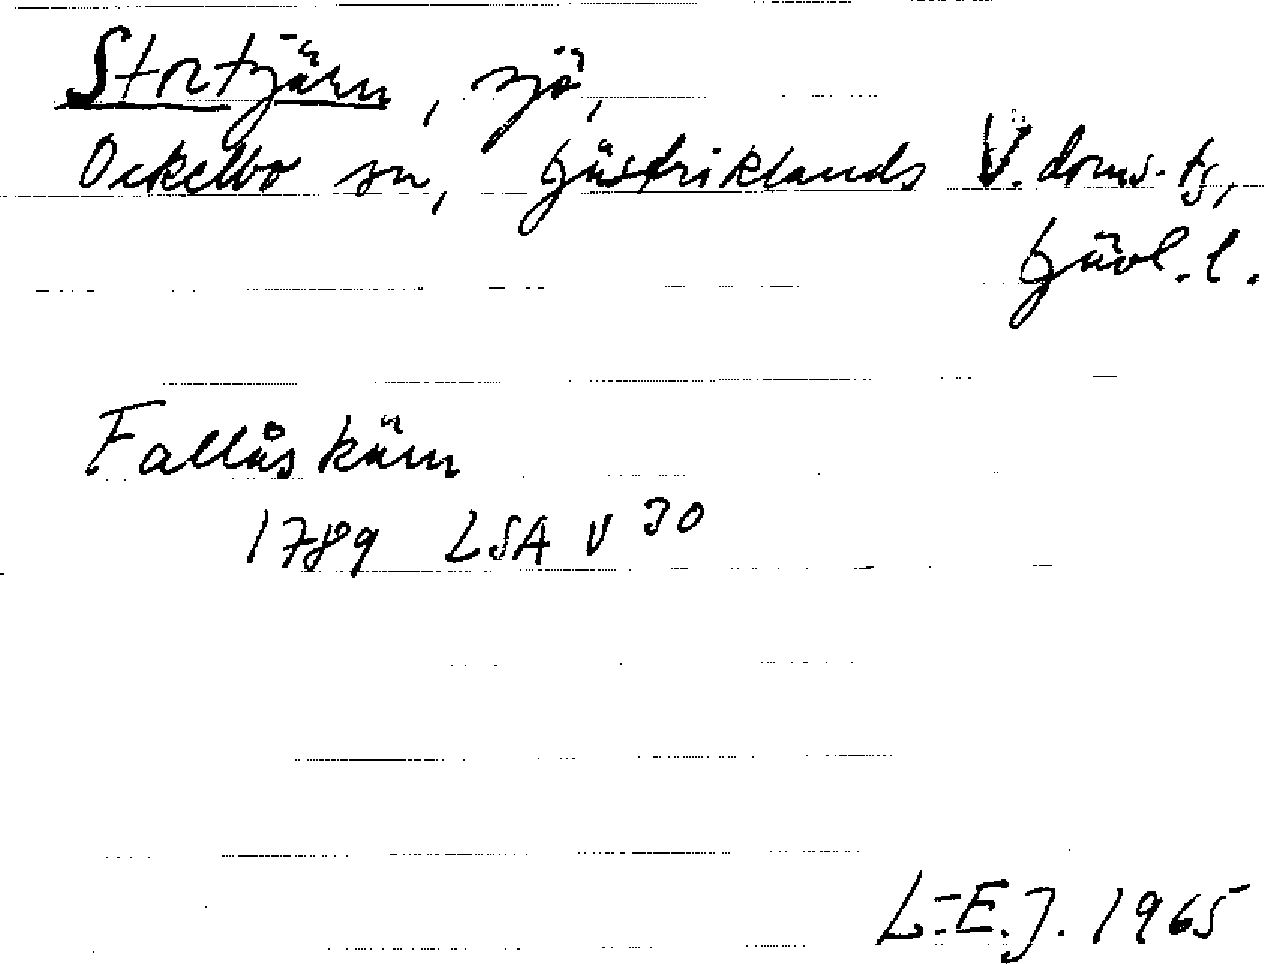 Stortjärn, sjö,
Ockelbo sn, Gästriklands V. doms.-tg,
Gävl. l.
Fallåskärn
1789 LSA V 30
L.-E.J. 1965